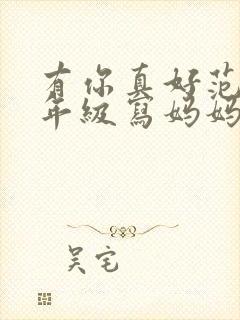 有你真好范
年級寫媽媽
吴宅